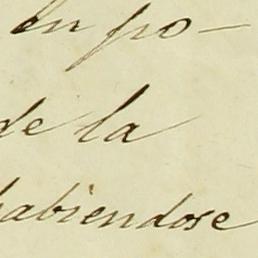 en po-
de la
habiendose